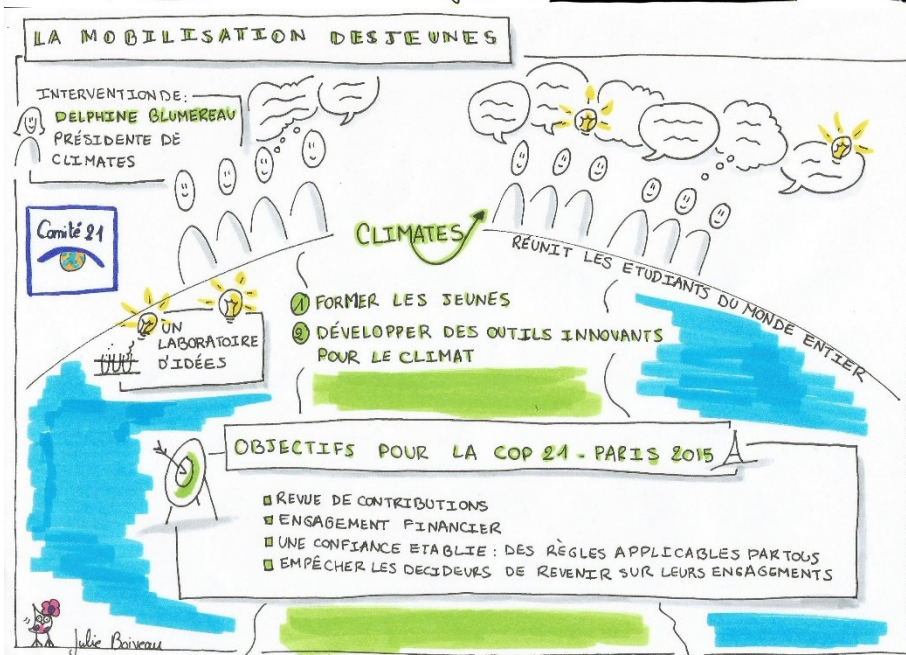 LA MOBILISATION DES JEUNES
INTERVENTION DE:
DELPHINE BLUMEREAU
PRÉSIDENTE DE
CLIMATES
Comité 21
CLIMATES
RÉUNIT LES ETUDIANTS DU MONDE ENTIER
① FORMER LES JEUNES
② DÉVELOPPER DES OUTILS INNOVANTS
POUR LE CLIMAT
UN
LABORATOIRE
D'IDÉES
OBJECTIFS POUR LA COP 21 - PARIS 2015
REVUE DE CONTRIBUTIONS
ENGAGEMENT FINANCIER
UNE CONFIANCE ETABLIE : DES RÈGLES APPLICABLES PAR TOUS
EMPÊCHER LES DECIDEURS DE REVENIR SUR LEURS ENGAGEMENTS
Julie Boiveau